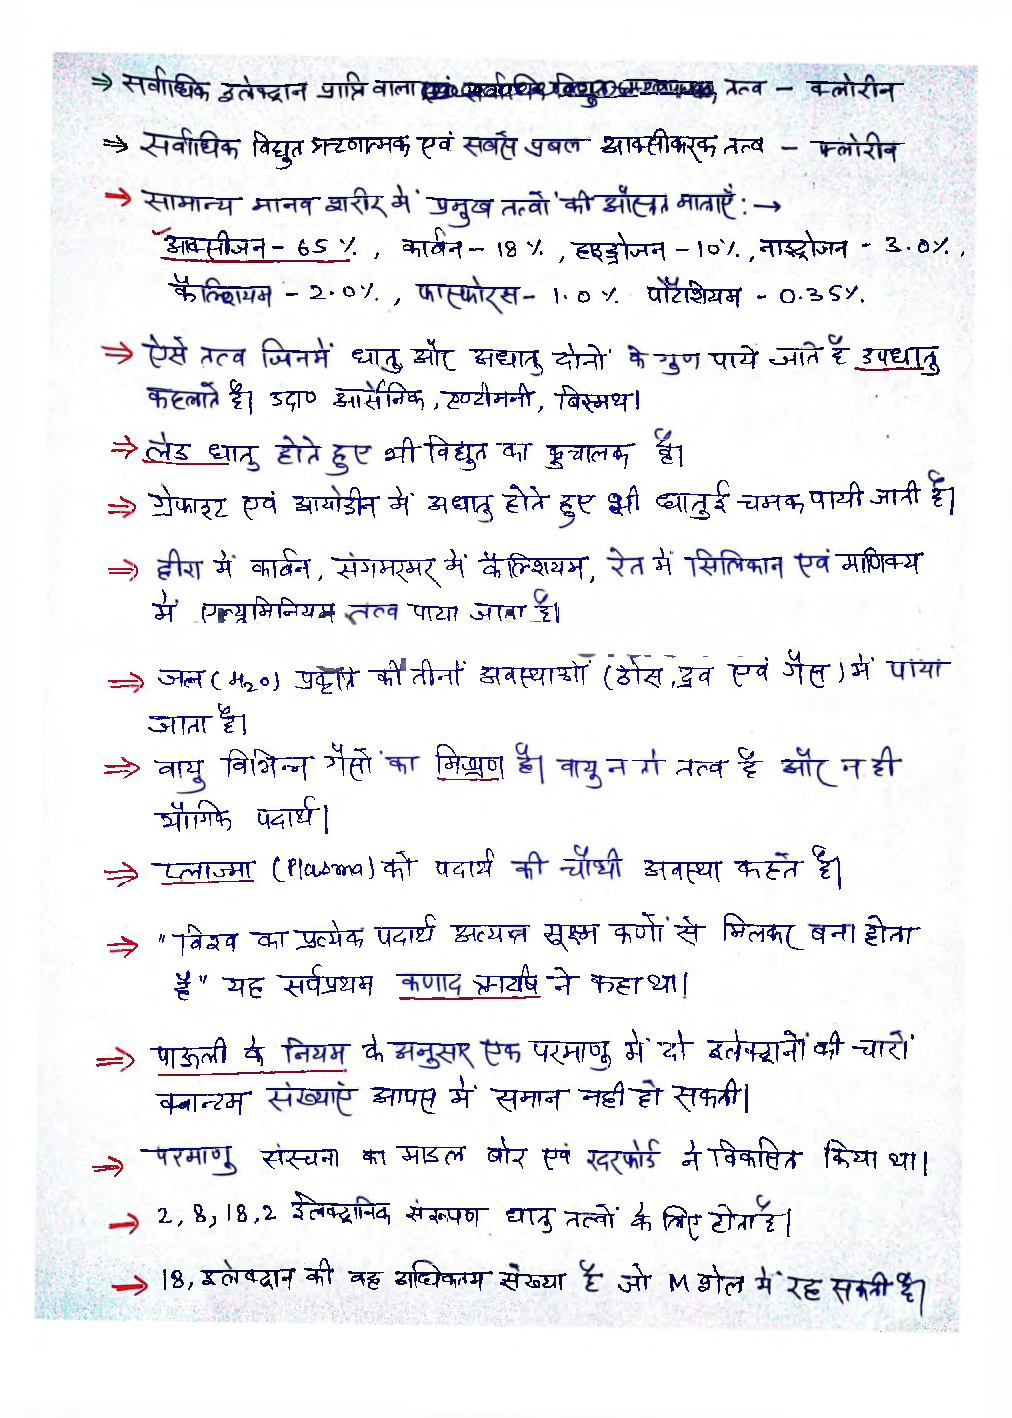 ⇒ सर्वाधिक इलेक्ट्रान प्राप्ति वाला तत्व - क्लोरीन
⇒ सर्वाधिक विद्युत ऋणात्मक एवं सबसे प्रबल आक्सीकरक तत्व - फ्लोरीन
→ सामान्य मानव शरीर में प्रमुख तत्वों की औसत मात्राएँ: →
आक्सीजन - 65 %, कार्बन - 18 %, हाइड्रोजन - 10%, नाइट्रोजन - 3.0%,
कैल्शियम - 2.0%, फास्फोरस - 1.0 % पोटैशियम - 0.35%.
⇒ ऐसे तत्व जिनमें धातु और अधातु दोनों के गुण पाये जाते है उपधातु
कहलाते है। उदा० आर्सेनिक, एण्टीमनी, बिस्मथ।
⇒ लेड धातु होते हुए भी विद्युत का कुचालक है।
⇒ ग्रेफाइट एवं आयोडीन में अधातु होते हुए भी धातुई चमक पायी जाती है।
⇒ हीरा में कार्बन, संगमरमर में कैल्शियम, रेत में सिलिकान एवं माणिक्य
में एल्यूमिनियम तत्व पाया जाता है।
⇒ जल (H₂O) प्रकृति की तीनों अवस्थाओं (ठोस, द्रव एवं गैस) में पाया
जाता है।
⇒ वायु विभिन्न गैसों का मिश्रण है। वायु न तो तत्व है और न ही
यौगिक पदार्थ।
⇒ प्लाज्मा (Plasma) को पदार्थ की चौथी अवस्था कहते है।
⇒ "विश्व का प्रत्येक पदार्थ अत्यन्त सूक्ष्म कणों से मिलकर बना होता
है" यह सर्वप्रथम कणाद ऋषि ने कहा था।
⇒ पाऊली के नियम के अनुसार एक परमाणु में दो इलेक्ट्रानों की चारों
क्वान्टम संख्याएं आपस में समान नही हो सकती।
⇒ परमाणु संरचना का माडल बोर एवं रदरफोर्ड ने विकसित किया था।
→ 2, 8, 18, 2 इलेक्ट्रानिक संरूपण धातु तत्वों के लिए होता है।
→ 18, इलेक्ट्रान की वह अधिकतम संख्या है जो M शेल में रह सकती है।